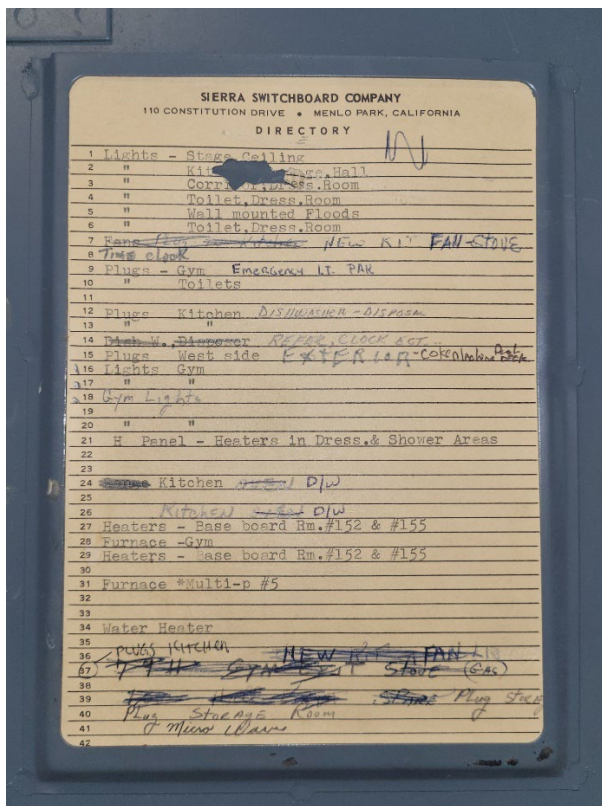 SIERRA SWITCHBOARD COMPANY
110 CONSTITUTION DRIVE • MENLO PARK, CALIFORNIA
DIRECTORY
1 Lights - Stage Ceiling
2 " Hall
3 " Dress.Room
4 " Toilet,Dress.Room
5 " Wall mounted Floods
6 " Toilet,Dress.Room
7 Fans NEW KIT FAN-STOVE
8 Time clock
9 Plugs - Gym Emergency LT. PAK
10 " Toilets
11
12 Plugs Kitchen DISHWASHER-DISPOSAL
13 " "
14 Dish W.,Disposer REFER, CLOCK ECT..
15 Plugs West side EXTERIOR -Coke Machine
16 Lights Gym
17 " "
18 Gym Lights
19
20 " "
21 H Panel - Heaters in Dress.& Shower Areas
22
23
24 Kitchen OVEN D/W
25
26 KITCHEN OVEN D/W
27 Heaters - Base board Rm.#152 & #155
28 Furnace -Gym
29 Heaters - Base board Rm.#152 & #155
30
31 Furnace *Multi-p #5
32
33
34 Water Heater
35
36 PLUGS KITCHEN NEW FAN
37 STOVE (GAS)
38
39 Plug
40 Plug STORAGE Room
41 Micro Wave
42